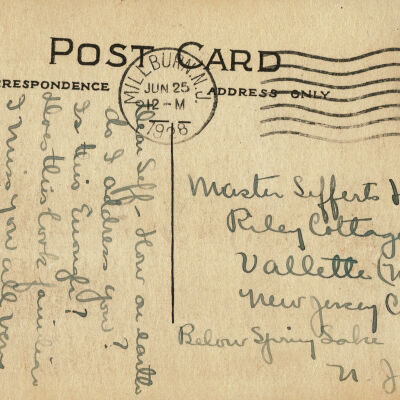 POST CARD
RRESPONDENCE
ADDRESS ONLY
MILLBURN. N.J.
JUN 25
12-M
1928
Dear Seff - How on earth
do I address you?
Is this Enough?
does this look familiar
I miss you all very
Master Sefferts H
Riley Cottage
Vallette (
New Jersey C
Below Spring Lake
N. J